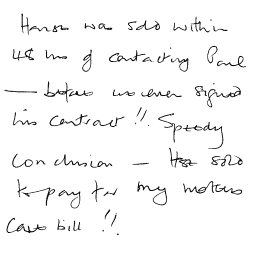 House was sold within
48 hrs of contacting Paul
— before we even signed
his contract !! Speedy
Conclusion — sold
to pay for my mothers
Care bill !!